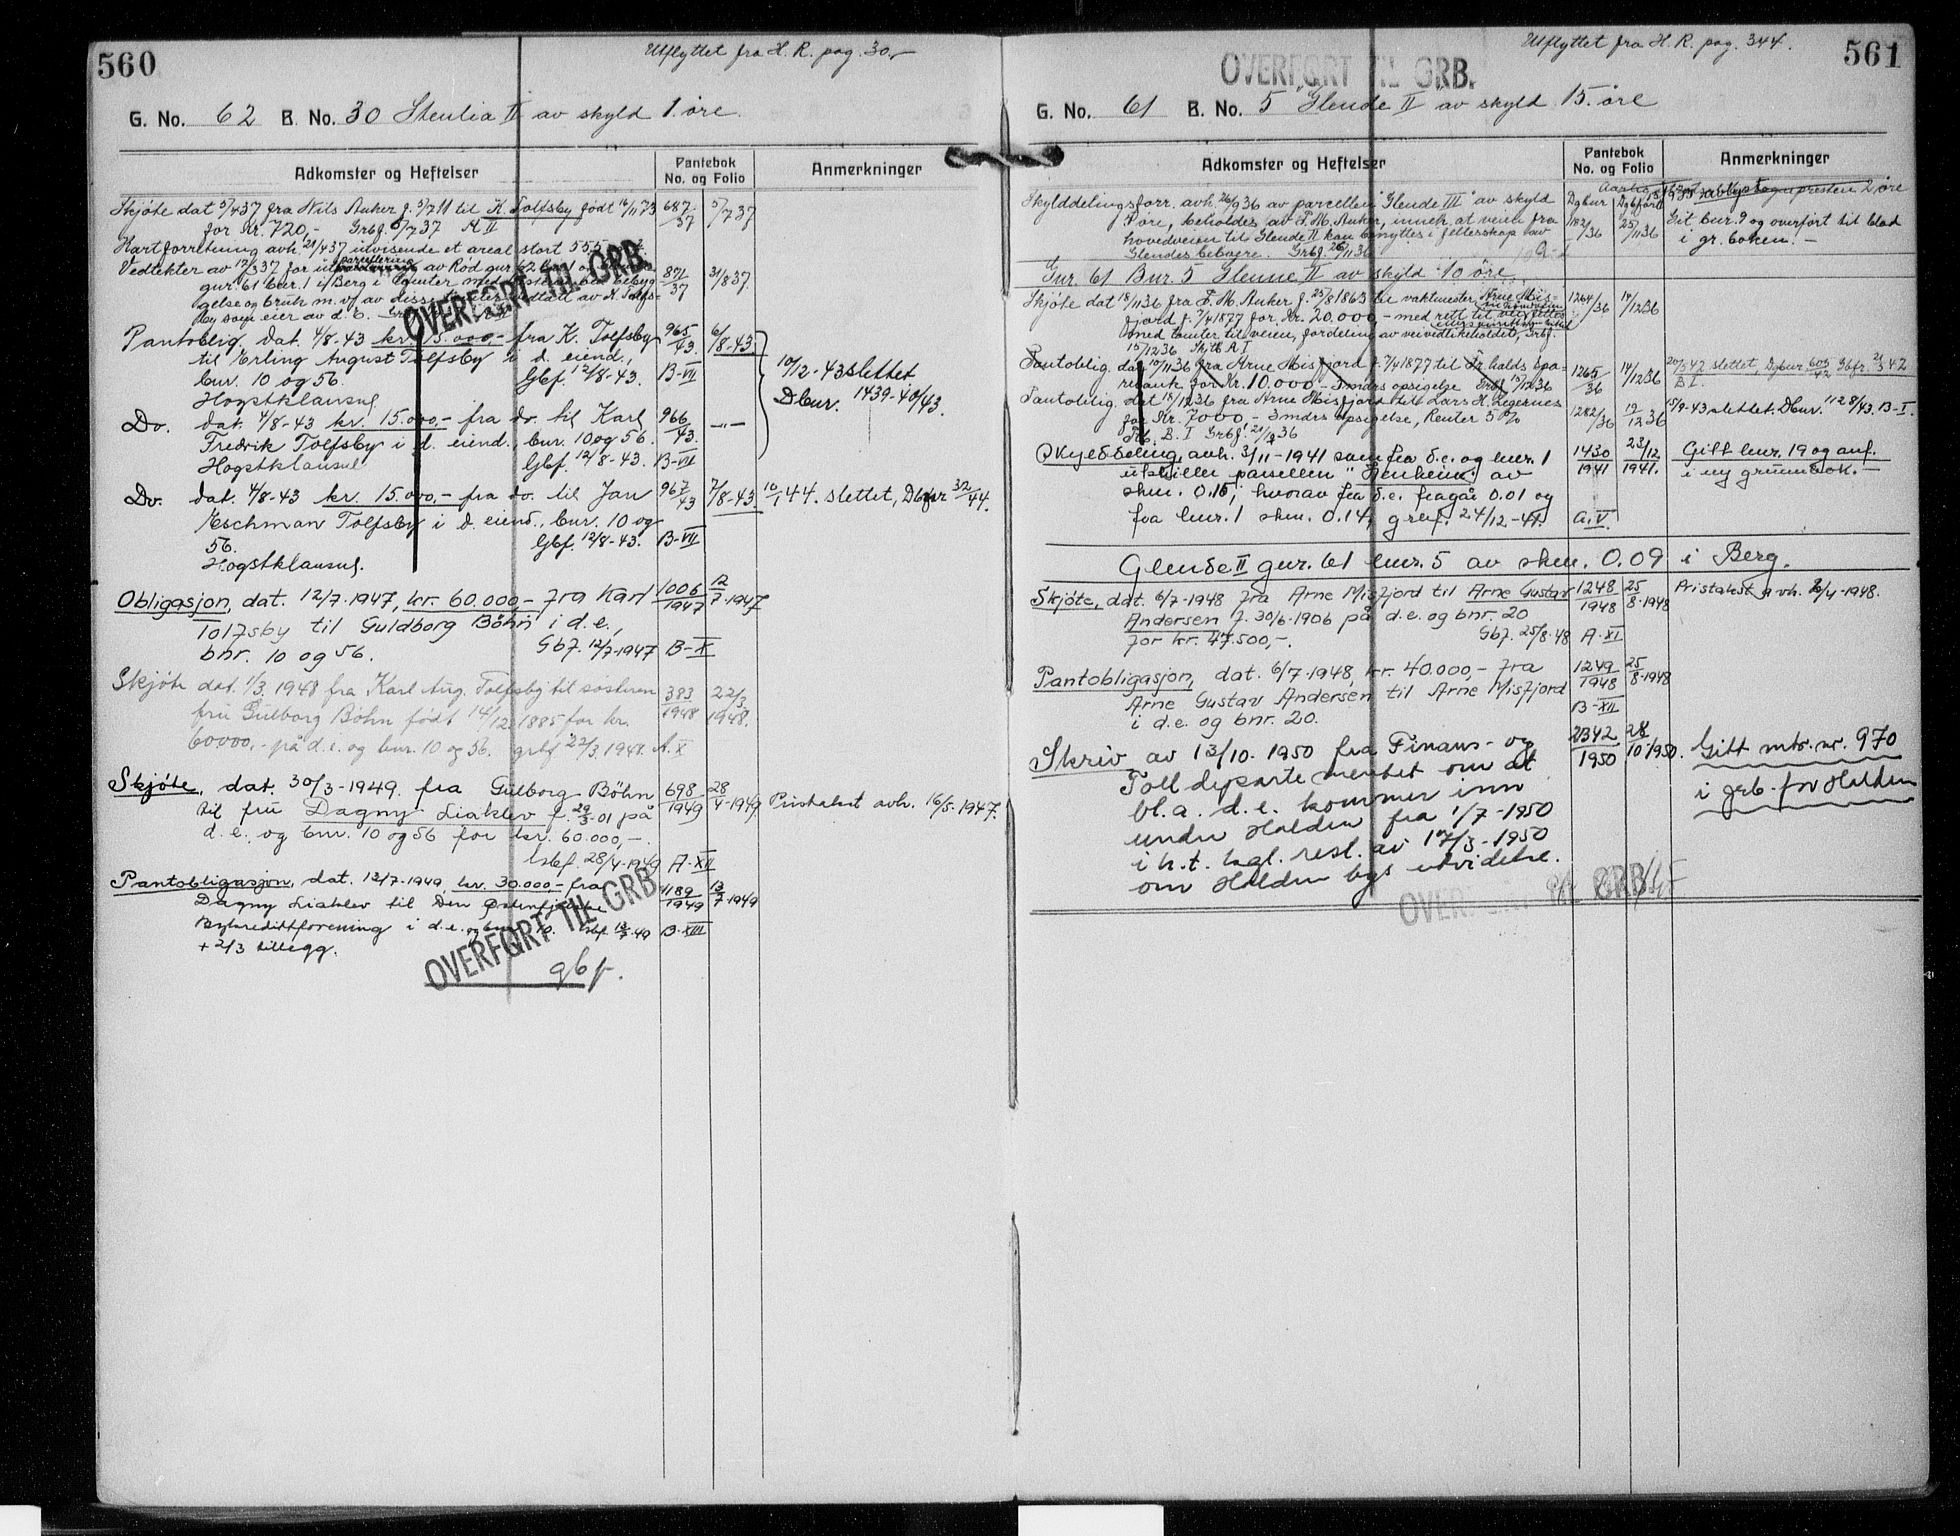 560
Utflyttet fra H. R. pag. 30,-
G. No. 62 B. No. 30 Stenlia II av skyld 1. øre.
Adkomster og Heftelser
Pantebok No. og Folio
Anmerkninger
Skjøte dat 5/4 37 fra Nils Anker f. 3/7 11 til K. Tolfsby født 16/11 73 687/37 5/7 37
for Kr. 720,- Grbf. 5/7 37 A II
Kartforretning avh. 21/4 37 utvisende et areal stort 555
Vedtekter av 17/3 37 for utparsellering av Rød gnr 62 bnr 1 og 871/37 31/8 37
gnr. 61 bnr. 1 i Berg i tomter med
gelse og bruk m. v. av disse tomter vedtatt av K. Tolfs-
by som eier av d. e.
OVERFØRT TIL GRB.
Pantoblig. dat. 4/8-43 kr. 15.000,- fra K. Tolfsby 965/43. 6/8-43.
til Erling August Tolfsby i d. eiend.,
bnr. 10 og 56. Gbf. 12/8-43. B-VII
Hogstklausul.
10/12-43 slettet
Dbnr. 1439-40/43.
Do. dat. 4/8-43 kr. 15.000,- fra do. til Karl 966/43. -"-
Fredrik Tolfsby i d. eiend., bnr. 10 og 56.
Hogstklausul Gbf. 12/8-43. B-VII
Do. dat. 4/8-43 kr. 15.000,- fra do. til Jan 967/43 7/8-43. 10/1 44. slettet, Dbnr 32/44.
Eschman Tolfsby i d. eiend., bnr. 10 og
56. Gbf. 12/8-43. B-VII
Hogstklausul.
Obligasjon, dat. 12/7-1947, kr. 60.000,- fra Karl 1006/1947 12/7-1947
Tolfsby til Guldborg Bøhn i d.e.,
bnr. 10 og 56. Gbf. 12/7-1947 B-X
Skjøte dat. 1/3. 1948 fra Karl Aug. Tolfsby til søsteren 383/1948 22/3 1948.
fru Gulborg Bøhn født 14/12 1885 for kr.
60000,- på d.e. og bnr. 10 og 56. grbf 22/3. 1948. A.X
Skjøte, dat. 30/3-1949. fra Gulborg Bøhn 698/1949 28/4-1949 Pristakst avh. 16/5-1947.
til fru Dagny Liaklev f. 29/3-01 på
d.e. og bnr. 10 og 56 for kr. 60.000,-.
Gbf. 28/4-1949 A-XII
Pantobligasjon, dat. 12/7-1949, kr. 30.000,- fra 1189/1949 13/7-1949
Dagny Liaklev til Den Østenfjelske
Bykredittforening i d.e. og bnr. 10. Gbf. 13/7-49 B-XIII
+ 2/3 tillegg.
OVERFØRT TIL GRB.
gbf.
561
Utflyttet fra H. R. pag. 344.
OVERFØRT TIL GRB.
G. No. 61 B. No. 5 "Glende II" av skyld 15. øre
Adkomster og Heftelser
Pantebok No. og Folio
Anmerkninger
Skylddelingsforr. avh. 26/9 36 av parcellen "Glende III" av skyld Dgbnr 1182/36 Dgbført 25/11 36 Git bnr. 9 og overført til blad
øre, beholdes av F. M. Anker, inneh. at veien fra i gr. boken. -
hovedveien til Glende II kan benyttes i fellesskap av
Glendes beboere. Grbf. 26/11 36
Gnr. 61 Bnr. 5 Glenne II av skyld 10 øre.
Skjøte dat 18/11 36 fra F. M. Anker f. 25/8 1863 til vaktmester Arne Mis- 1264/36 14/12 36
fjord f. 7/4 1877 for Kr. 20.000,- med rett til
med tomter til veien, fordeling av veivedlikeholdet, Grbf.
15/12 36 Skjtb A I
Pantoblig. dat 10/11 36 fra Arne Misfjord f. 7/4 1877 til Fr. halds Spa- 1265/36 14/12 36 20/3 42 slettet, Dgbnr. 605/42 Gbfr. 21/3 42
rebank for Kr. 10.000,- 3 mdrs opsigelse Grbf. 15/12 36 B I.
Pantoblig. dat 18/12 36 fra Arne Misfjord til Lars H. Zegernes 1282/36 19/12 36 15/9-43 slettet. Dbnr. 1128/43. B-I.
for Kr. 7000,- 3 mdrs opsigelse, Renter 5 %
Pb. B. I Grbf. 21/12 36
Skylddeling, avh. 3/11-1941 som fra d.e. og bnr. 1 1430/1941 23/12 1941. Gitt bnr. 19 og anf.
utskiller parsellen " " av i ny grunnbok. -
skm. 0.15, hvorav fra d.e. fragår 0.01 og
fra bnr. 1 skm. 0.14, grbf. 24/12-41. A.V.
Glende II gnr. 61 bnr. 5 av skm. 0.09 i Berg.
Skjøte, dat. 6/7-1948 fra Arne Misfjord til Arne Gustav 1248/1948 25/8-1948 Pristakst avh. 2/4-1948.
Andersen f. 30/6-1906 på d.e. og bnr. 20
for kr. 47.500,-. Gbf. 25/8-48 A-XI
Pantobligasjon, dat. 6/7-1948, kr. 40.000,- fra 1249/1948 25/8-1948
Arne Gustav Andersen til Arne Misfjord
i d.e. og bnr. 20. B-XII
Skriv av 13/10. 1950 fra Finans- og 2342/1950 28/10 1950. Gitt mtr. nr. 970
Tolldepartementet om at i grb. for Halden
bl. a. d.e. kommer inn
under Halden fra 1/7-1950
i h.t. kgl. resl. av 17/3-1950
om Halden bys utvidelse.
OVERFØRT TIL GRB.